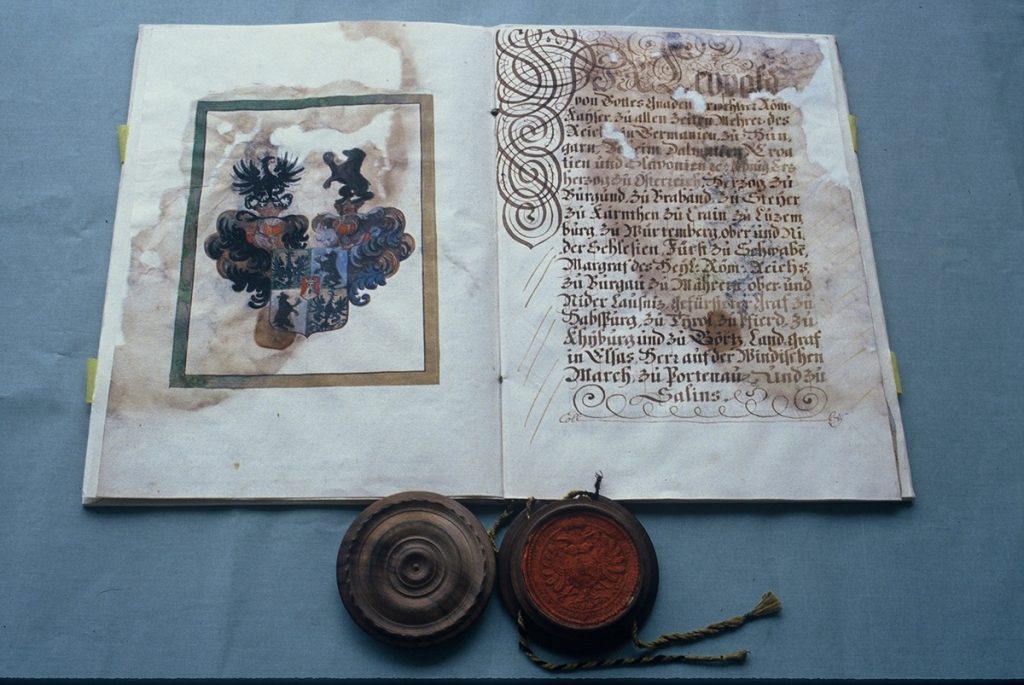 Wir Leopold
von Gottes Gnaden erwehlter Röm:
Kayser, zu allen Zeiten Mehrer des
Reichs, zu Germanien, zu Hun,
garn, Böheim, Dalmatien, Croa
tien und Slavonien König, Ertz
herzog zu Osterreich, Herzog zu
Burgund, zu Braband, zu Steyer
zu Kärnthen, zu Crain, zu Lüzem
bürg, zu Würtemberg, ober und Ni
der Schlesien, Fürst zu Schwabē,
Margraf des Heyl: Röm: Reichs,
zu Burgau, zu Mähren, ober und
Nider Lausniz, gefürster Graf zu
Habspürg, zu Tyrol, zu Pfierd, zu
Khyburg und zu Görtz, Landgraf
in Elsas, Herr auf der Windischen
March, zu Portenau, und zu
Salins.